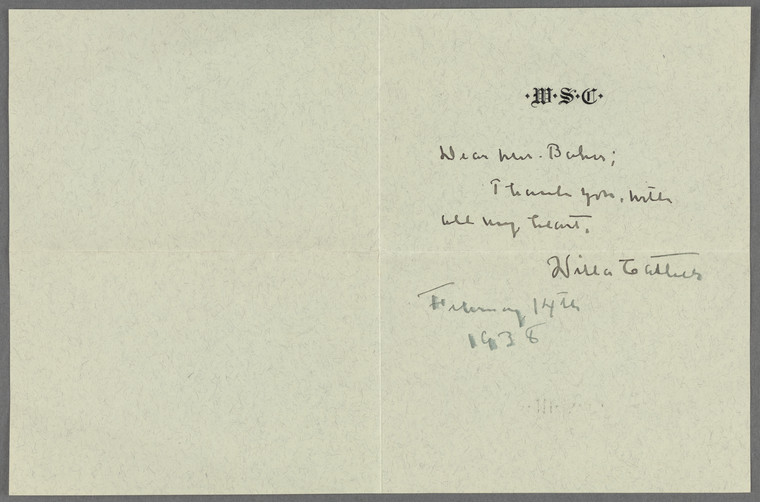 ·W·S·C·
Dear Mr. Baker;
Thank you, with
all my heart.
Willa Cather
February 14th
1938